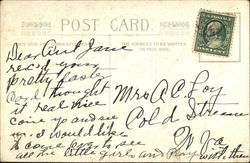 POST CARD.
THE ADDRESS TO BE WRITTEN
ON THIS SIDE
Dear Aunt Janie
rec'd your
pretty Easter
Card thought
it real nice
come up and see
us
would like
to come to see
all me little girls and play with the
Mrs A C Foy
Cold Stream
W Va